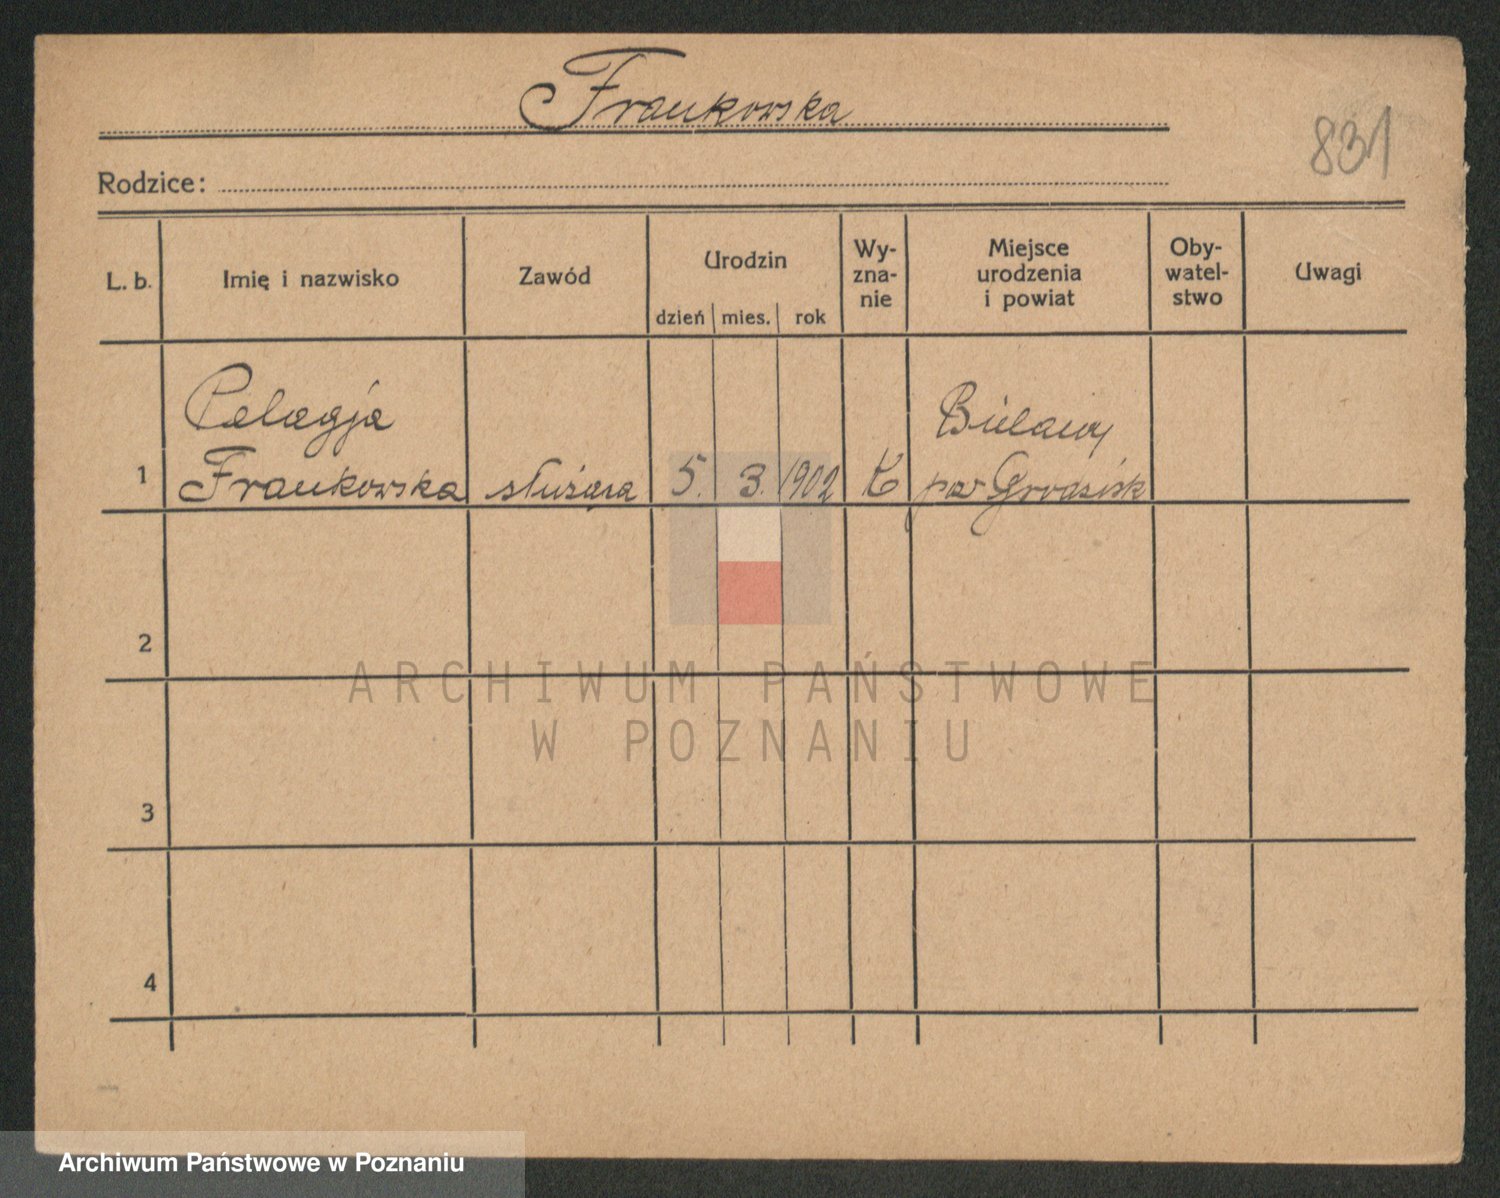 Frankowska
831
Rodzice:
L. b.
Imię i nazwisko
Zawód
Urodzin
dzień mies. rok
Wy-
zna-
nie
Miejsce
urodzenia
i powiat
Oby-
watel-
stwo
Uwagi
Pelagja
Bielawy
1 Frankowska służąca 5. 3. 1902 K pow Grodzisk
2
3
4
ARCHIWUM PAŃSTWOWE
W POZNANIU
Archiwum Państwowe w Poznaniu